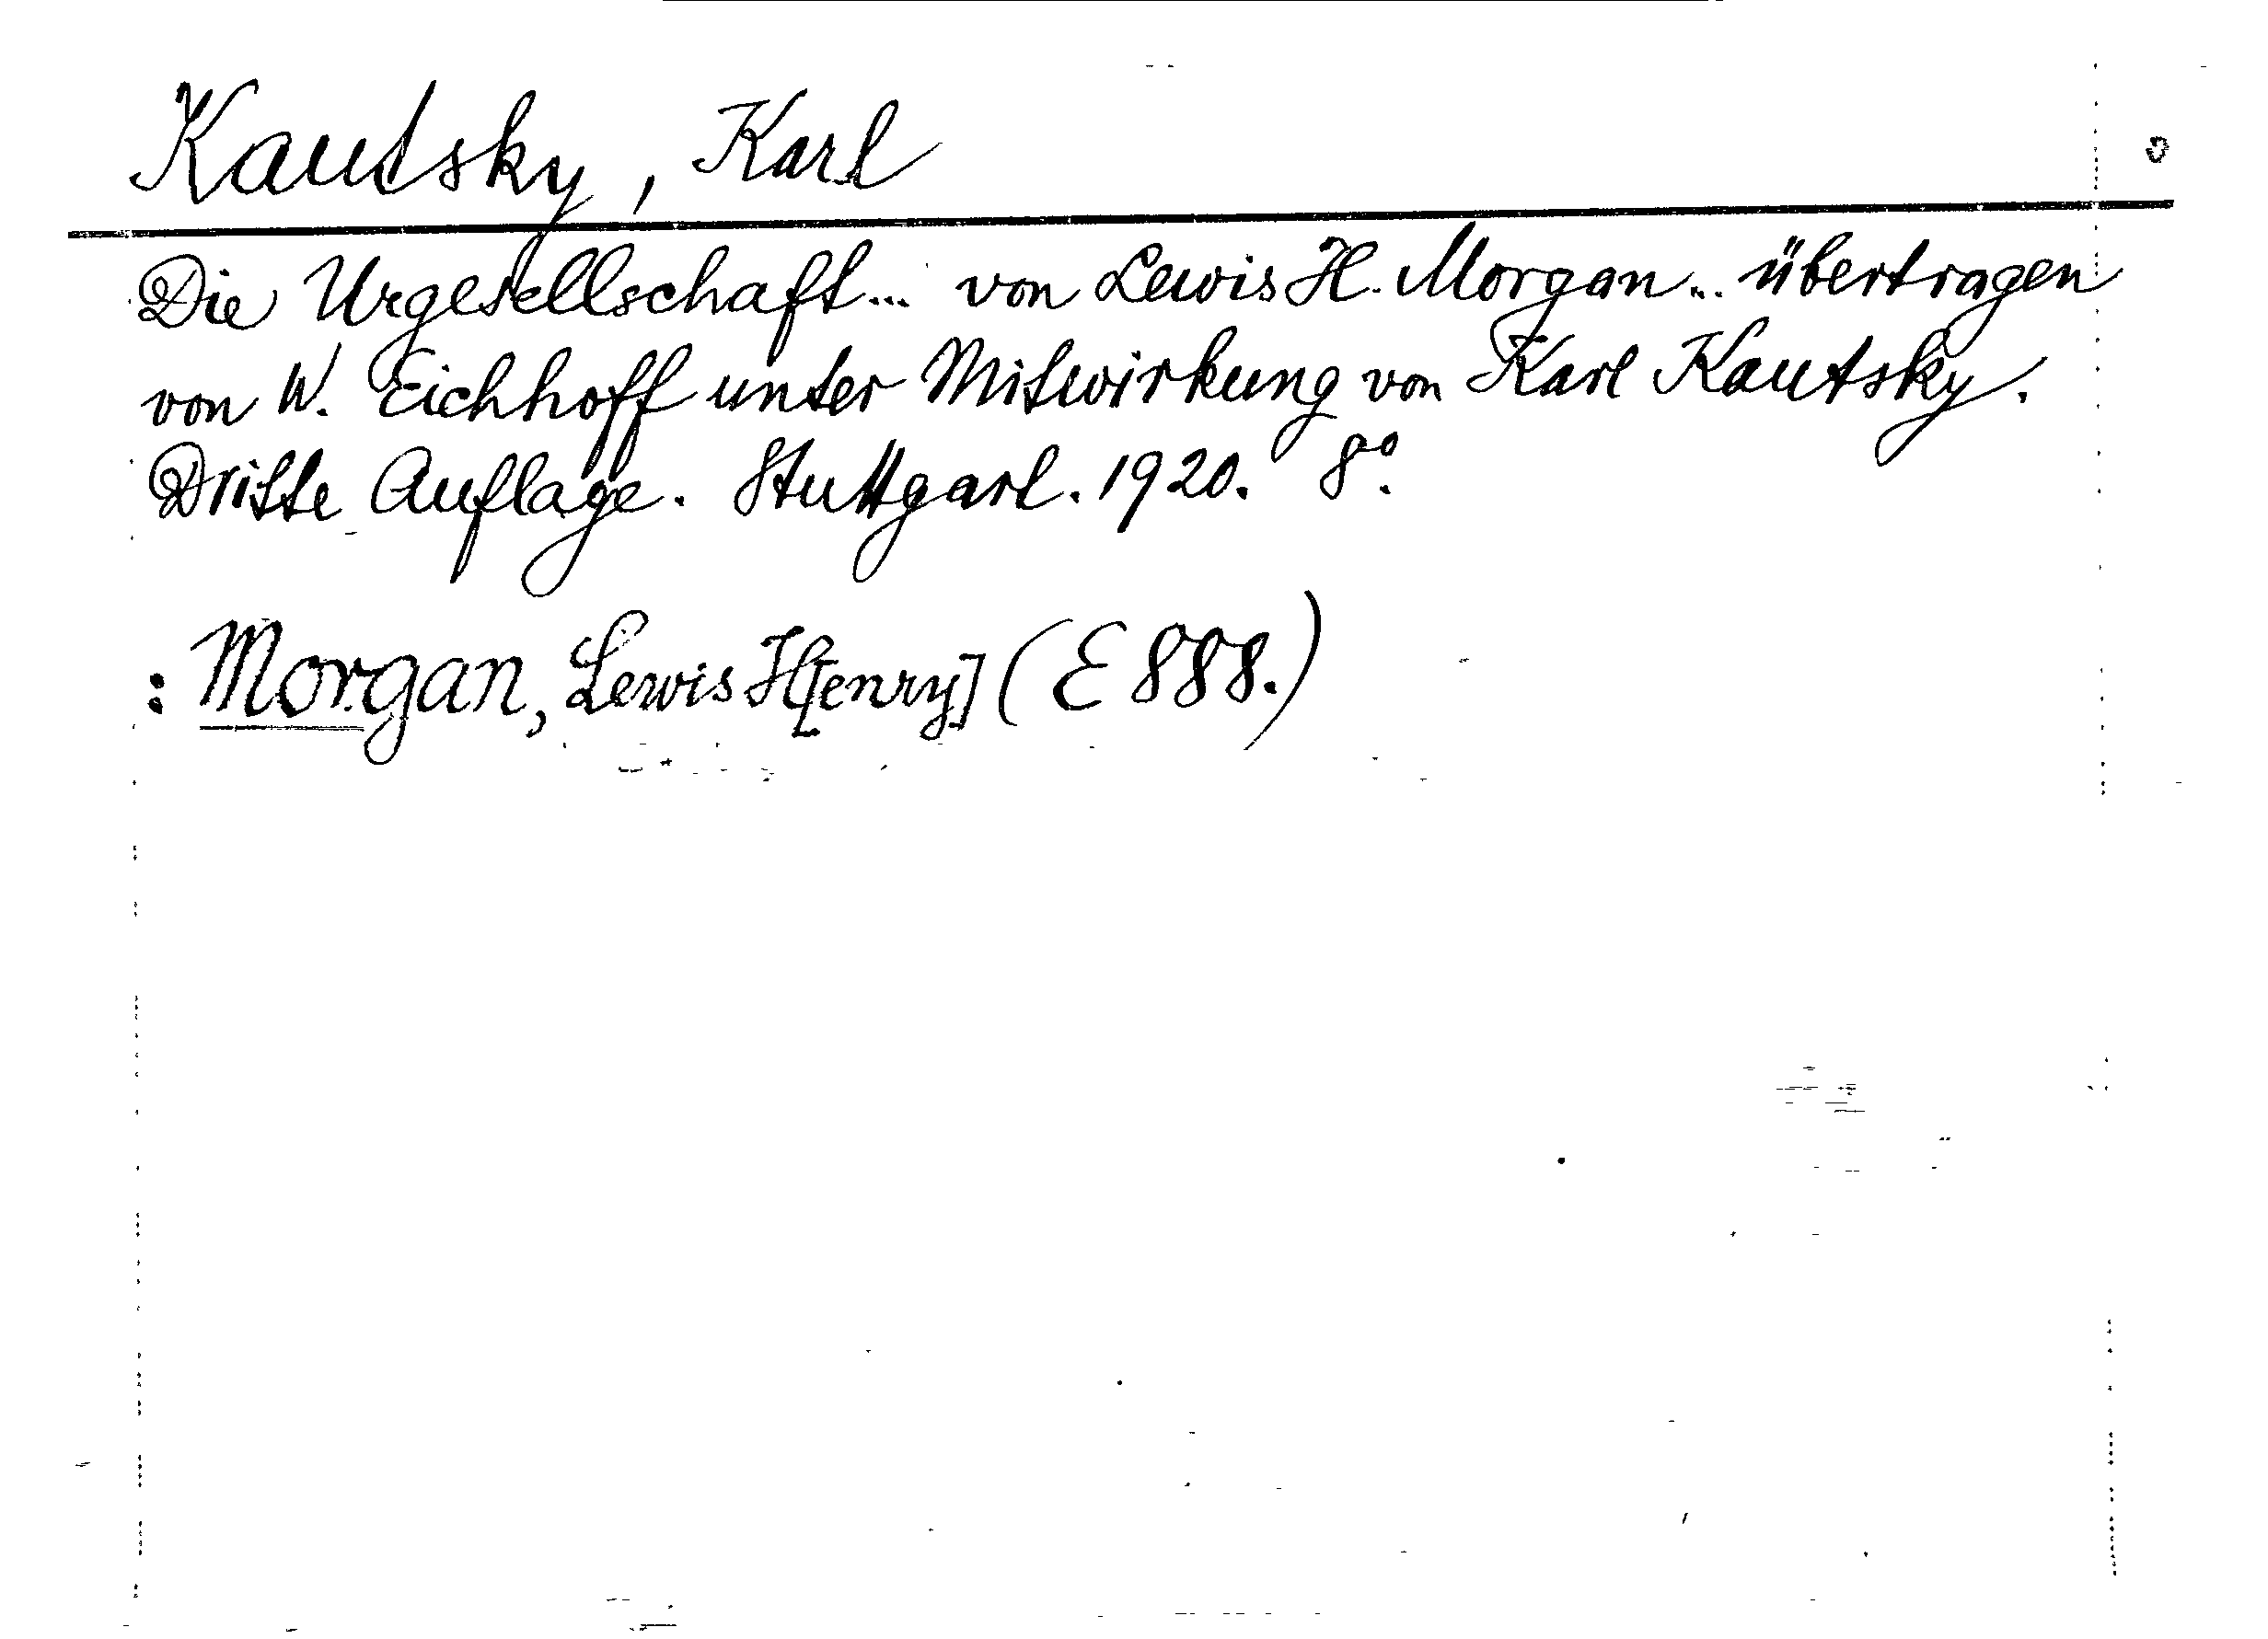 Kautsky, Karl
Die Urgesellschaft... von Lewis H. Morgan... übertragen
von W. Eichhoff unter Mitwirkung von Karl Kautsky.
Dritte Auflage. Stuttgart. 1920. 8°.
: Morgan, Lewis H[enry] (E 888.)